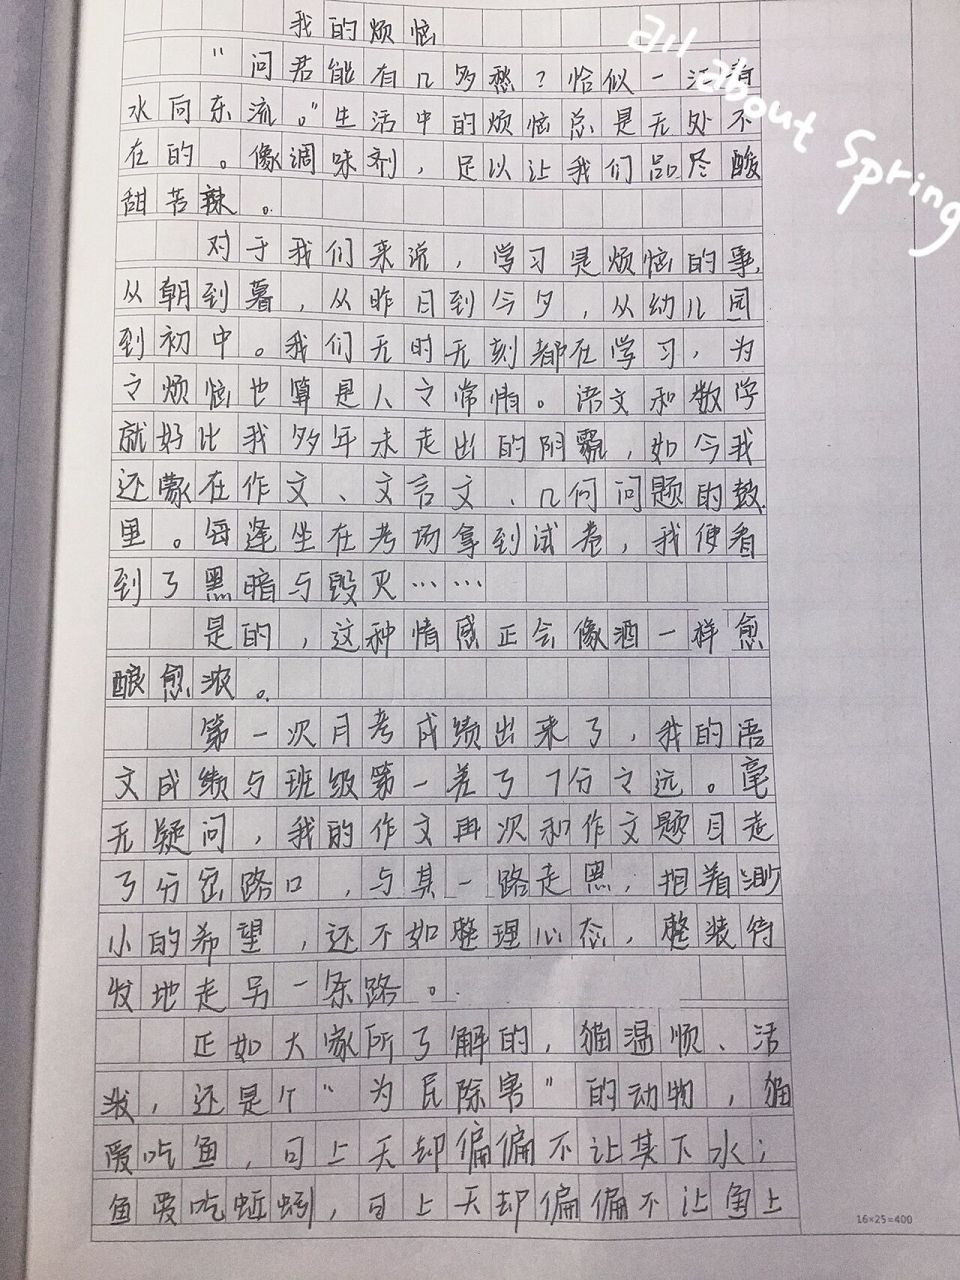 我的烦恼
“问君能有几多愁？恰似一江春
水向东流。”生活中的烦恼总是无处不
在的。像调味剂，足以让我们品尽酸
甜苦辣。
对于我们来说，学习是烦恼的事，
从朝到暮，从昨日到今夕，从幼儿园
到初中。我们无时无刻都在学习，为
之烦恼也算是人之常情。语文和数学
就好比我多年未走出的阴霾，如今我
还蒙在作文、文言文、几何问题的鼓
里。每逢坐在考场拿到试卷，我便看
到了黑暗与毁灭……
是的，这种情感正会像酒一样愈
酿愈浓。
第一次月考成绩出来了，我的语
文成绩与班级第一差了7分之远。毫
无疑问，我的作文再次和作文题目走
了分岔路口，与其一路走黑，抱着渺
小的希望，还不如整理心态，整装待
发地走另一条路。
正如大家所了解的，猫温顺、活
泼，还是个“为民除害”的动物，猫
爱吃鱼，可上天却偏偏不让其下水；
鱼爱吃蚯蚓，可上天却偏偏不让鱼上
16×25=400
all about Spring